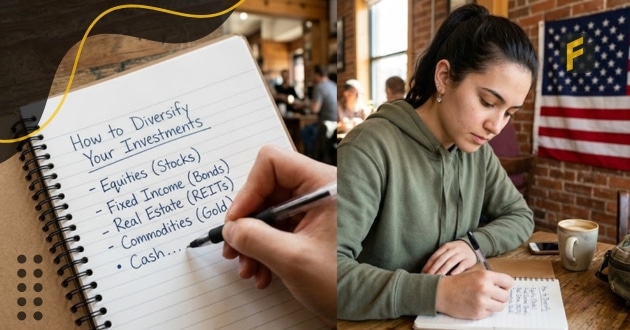 How to Diversify
Your Investments
- Equities (Stocks)
- Fixed Income (Bonds)
- Real Estate (REITs)
- Commodities (Gold)
• Cash....
F